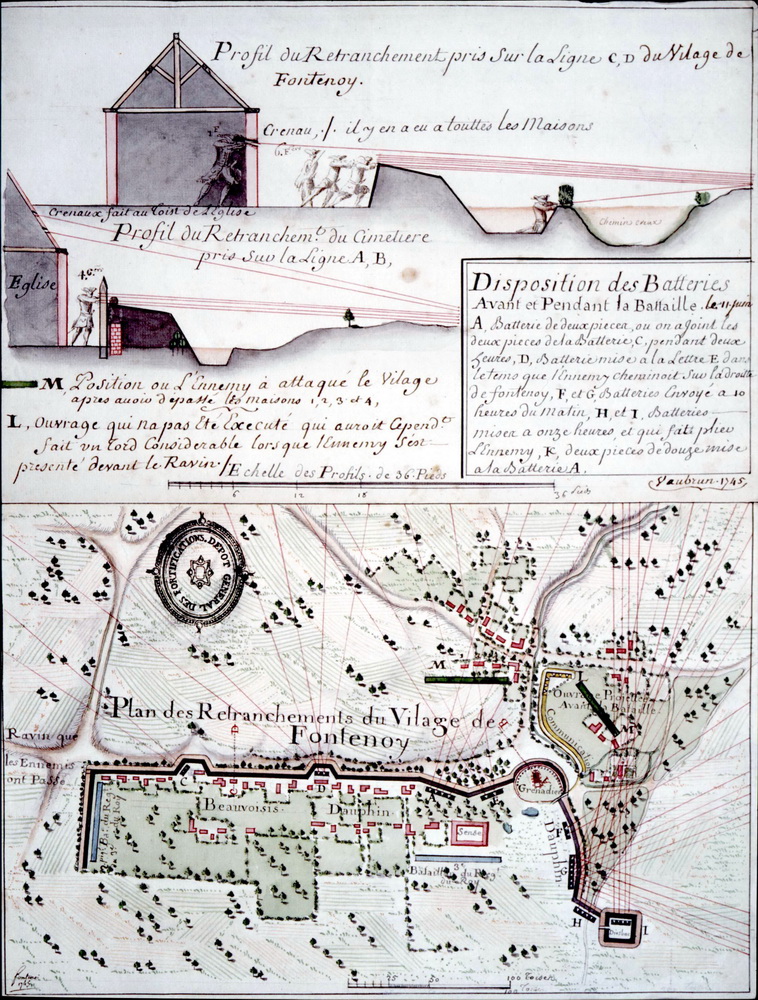 Profil du Retranchement pris Sur la Ligne C, D du Vilage de
Fontenoy.
Crenau, ./. il y en a eu a touttes les Maisons
6. P.
Chemin creux
Crenaux fait au Toist de L'Eglise
Profil du Retranchem.t du Cimetiere
pris Sur la Ligne A, B,
Eglise
M Position ou L'Ennemy à attaqué le Vilage
apres avoir depassé les maisons 1, 2, 3 et 4,
L, Ouvrage qui na pas Eté Executé qui auroit Cepend.t
fait un tord Considerable lorsque l'Ennemy S'est
presenté devant le Ravin ./.
Echelle des Profils de 36. Pieds
6 12 18 36 Pieds
Disposition des Batteries
Avant et Pendant la Battaille. le 11 Juin
A, Batterie de deux pieces, ou on a Joint les
deux pieces de la Batterie, C, pendant deux
heures, D, Batterie mise a la Lettre E dans
le tems que l'Ennemy cheminoit Sur la droitte
de fontenoy, F, et G, Batteries Envoyé a 10
heures du Matin, H, et I, Batteries
mises a onze heures, et qui fait plier
L'Ennemy, K, deux pieces de douze mise
a la Batterie A.
Vaubrun. 1745.
DEPOT GENERAL DES FORTIFICATIONS.
M
L
Ouvrage Projetté
Avant la Bataille
Communication
Plan des Retranchements du Vilage de
Fontenoy
Ravin que
les Ennemis
ont Passé
C
D
Grenadier
Beauvoisis
Dauphin
Bat. du Roy
Sense
3e
Bataillon du Roy
Dauphin
F
G
H
I
50 100 Toises